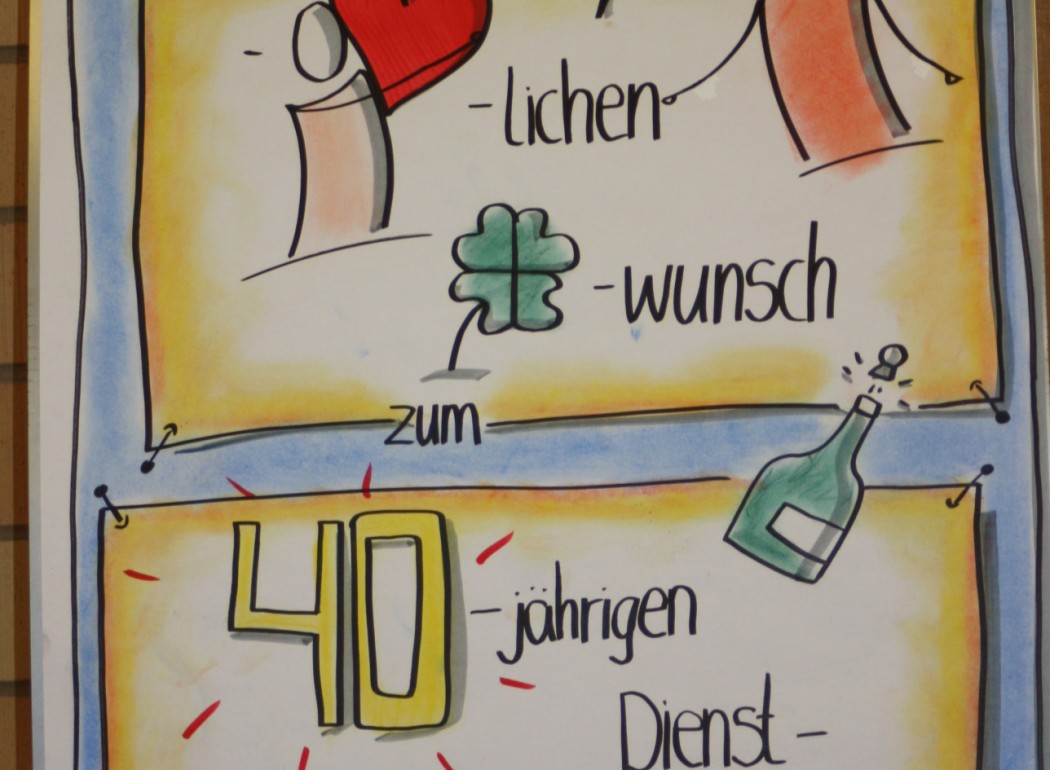 -lichen
-wunsch
zum
40-jährigen
Dienst-